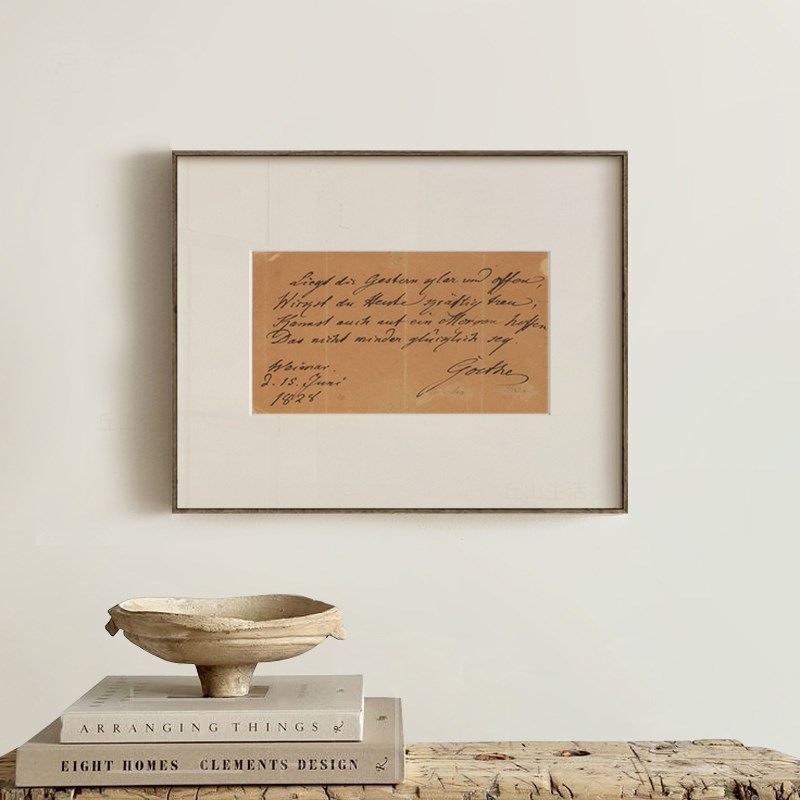 Liegt dir Gestern klar und offen,
Wirkst du Heute kräftig treu;
Kannst auch auf ein Morgen hoffen
Das nicht minder glücklich sey.
Weimar.
d. 15. Juni
1828
Goethe
ARRANGING THINGS
EIGHT HOMES CLEMENTS DESIGN